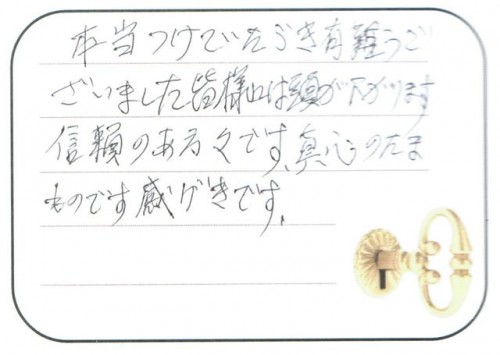 本当つけていただき有難うご
ざいました皆様には頭が下がります
信頼のある々です、真心のたま
ものです感げきです、